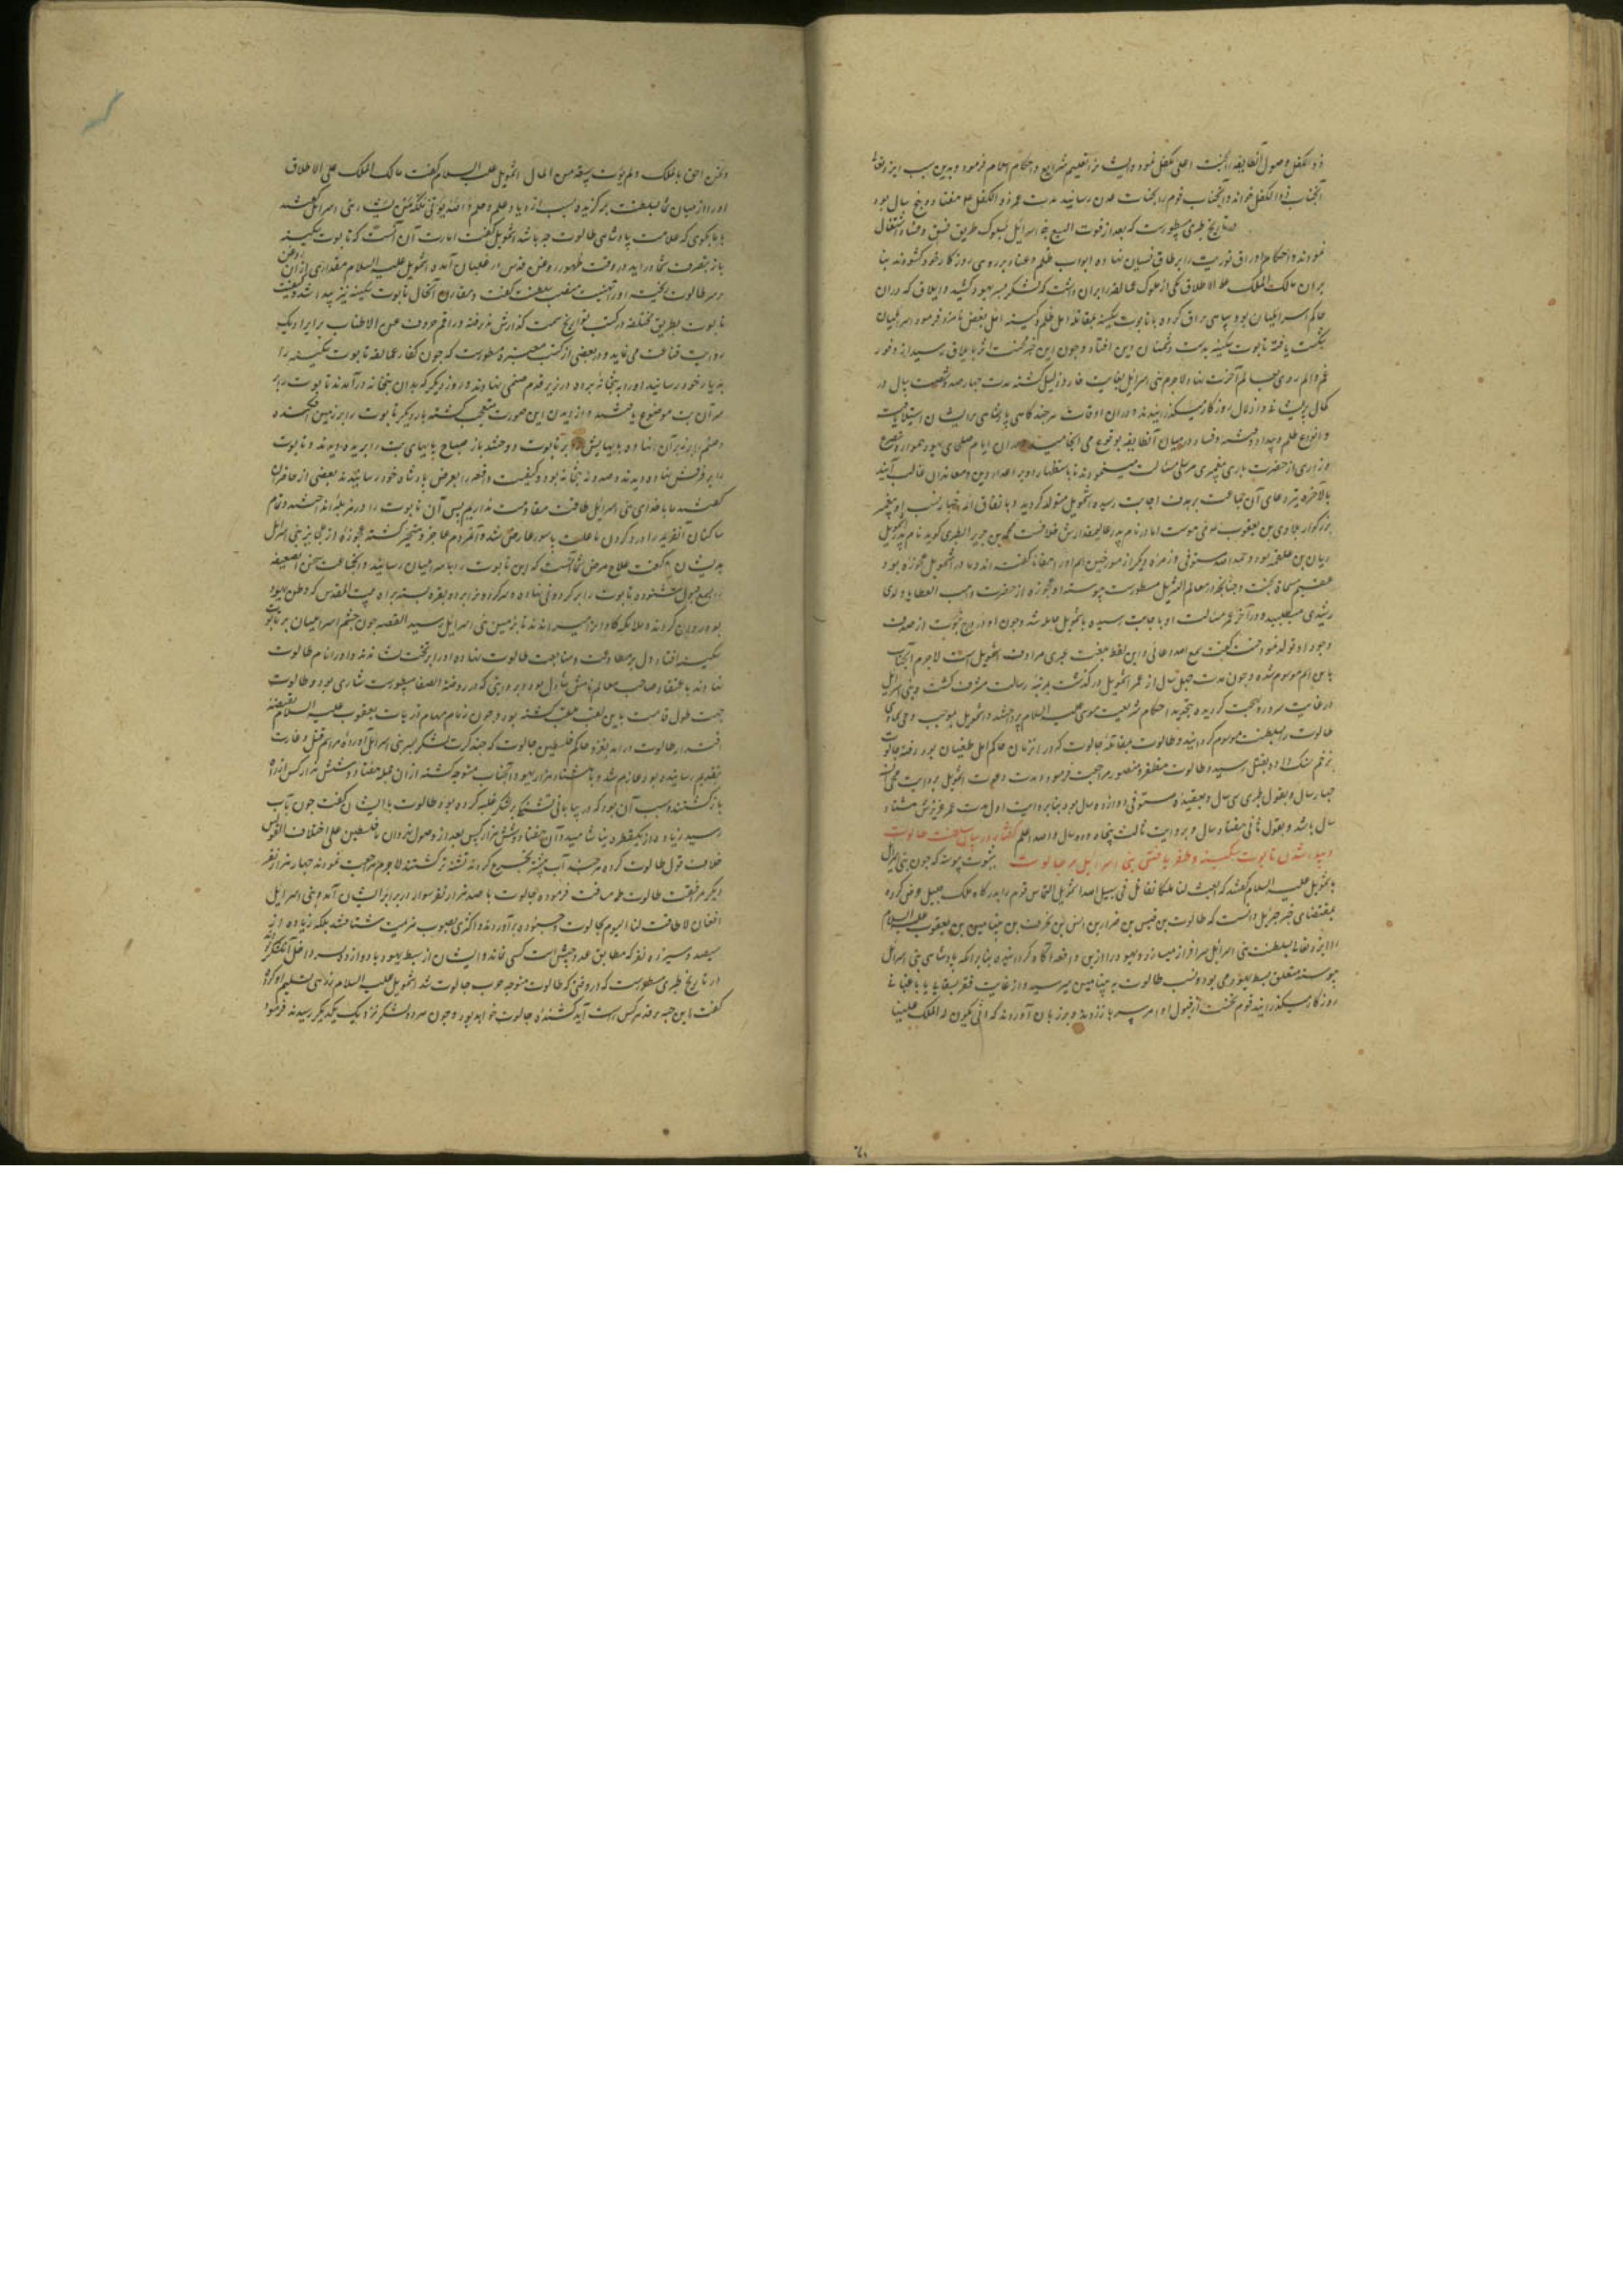 ذو الکفل وصول آنطایفه را بجنت اعلی تکفل نمود و ایشانرا تعلیم شرایع و احکام اسلام فرمود و بدین سبب ایزد تعالی
آنجناب را ذو الکفل خواند و آنجناب قوم را بجنات عدن رسانید مدت عمر ذو الکفل علیه هفتاد و پنج سال بود
در تاریخ طبری مسطورست که بعد از فوت الیسع بنی اسرائیل سلوک طریق فسق و فساد اشتغال
نمودند و احکام اوراق توریت را بر طاق نسیان نهاده ابواب ظلم و عناد بر روی روزگار خود گشودند بنا
بران مالک الملک علی الاطلاق یکی از ملوک عمالقه را بران داشت که لشکر بسر یهود کشید و ایلاف که دران
حاکم اسرائیلیان بود سپاهی یراق کرده با تابوت سکینه بمقاتله اهل ظلم و کینه
شکست یافته تابوت سکینه بدست دشمنان دین افتاد و چون این خبر بایلاف رسید از وفور
غم و الم روی بعالم آخرت نهاد لاجرم بنی اسرائیل بغایت خار و ذلیل گشته مدت چهارصد و شصت سال در
کمال پریشانی و اذلال روزگار میگذرانیدند و دران اوقات هر چند گاهی پادشاهی بر ایشان استیلا یافته
و انواع ظلم و بیداد و فتنه و فساد در میان آنطایفه بوقوع می انجامید دران ایام صلحای یهود همواره بتضرع
و زاری از حضرت باری پیغمبری مرسل مسالت مینمودند تا باستظهار او بر اعداء دین و معاندان غالب آیند
بالآخره تیر دعای آن جماعت بر هدف اجابت رسیده اشمویل متولد گردید و باتفاق ائمه اخبار نسب او پیغمبر
بزرگوار بلاوی بن یعقوب منتهی میشود اما در نام پدر عالیمقدارش خلافست محمد بن جریر الطبری گوید نام پدر اشمویل
ریان بن علقمه بود و حمد الله مستوفی و زمره دیگر از مورخین اسم او را گفته اند و مادر اشمویل عجوزه بود
عقیم مسماة بحنت و چنانچه در معالم التنزیل مسطورست پیوسته آن عجوزه از حضرت واهب العطایا ولدی
رشیدی میطلبید و در آخر عمر مسالت او باجابت رسیده باشمویل حامله شد و چون او در برج نبوت از صدف
وجود او تولد نمود حنت گفت سمع الله دعائی و این لفظ بلغت عبری مرادف اشمویل است لاجرم آنجناب
باین اسم موسوم شده و چون مدت چهل سال از عمر اشمویل در گذشت بمرتبه رسالت مشرف گشت و بنی اسرائیل
در غایت سرور و بهجت گردیده بتجدید احکام شریعت موسی علیه السلام پرداختند و اشمویل بموجب وحی سماوی
طالوت را بسلطنت موسوم گردانید و طالوت بمقاتله جالوت که در انزمان حاکم اهل طغیان بود رفته جالوت
بزخم سنگ داود بقتل رسید و طالوت مظفر و منصور مراجعت فرمود و مدت دعوت اشمویل بروایت
چهار سال و بقول طبری سی سال و بعقیده مستوفی دوازده سال بود بنابر روایت اول مدت عمر عزیزش هشتاد
سال باشد و بقول ثانی هفتاد سال و بروایت ثالث پنجاه و دو سال والله اعلم گفتار در بیان سلطنت طالوت
و پیدا شدن تابوت سکینه و ظفر یافتن بنی اسرائیل بر جالوت بثبوت پیوسته که چون بنی اسرائیل
باشمویل علیه السلام گفتند که ابعث لنا ملکا نقاتل فی سبیل الله اشمویل التماس قوم را بدرگاه ملک جلیل عرض کرده
بمقتضای خبر جبرئیل دانست که طالوت بن قیس بن ضرار بن انس بن یحرف بن بنیامین بن یعقوب علیه السلام
را ایزد تعالی بسلطنت بنی اسرائیل سرافراز میسازد و یهود را ازین واقعه آگاه گردانید بنابر آنکه پادشاهی بنی اسرائیل
پیوسته متعلق بسبط یهودا می بود و نسب طالوت به بنیامین میرسید و از غایت فقر بسقایا یا دباغتی
روزگار میگذرانید قوم نخست از قبول او امر سر باز زدند و بر زبان آوردند که انی یکون له الملک علینا
و نحن احق بالملک و لم یؤت سعة من المال اشمویل علیه السلام گفت مالک الملک علی الاطلاق
او را از میان شما بسلطنت برگزیده بسبب ازدیاد علم و حلم والله یؤتی ملکه من یشاء بنی اسرائیل گفتند
با ما بگوی که علامت پادشاهی طالوت چه باشد اشمویل گفت امارت آن آنست که تابوت سکینه
باز بتصرف شما در اید در وقت ظهور دهن قدس در غلیان آمده اشمویل علیه السلام مقداری ازان دهن
بر سر طالوت ریخت و او را تهنیت منصب سلطنت گفت و مقارن آنحال تابوت سکینه نیز پیدا شد و کیفیت
تابوت بطریق مختلفه در کتب تواریخ سمت گذارش پذیرفته و راقم حروف عن الاطناب بر ایراد یک
روایت قناعت می نماید و در بعضی از کتب معتبره مسطورست که چون کفار عمالقه تابوت سکینه را
بدیار خود رسانیدند او را به بتخانه برده در زیر قدم صنمی نهادند و روز دیگر که بدان بتخانه درآمدند تابوت را بر
سر آن بت موضوع یافتند و از دیدن این صورت متعجب گشته بار دیگر تابوت را بر زمین افکنده
و صنم را بر زبر آن نهاده پایهایش را بر تابوت دوختند باز صباح پایهای بت را بریده دیدند و تابوت
را بر فرقش نهاده دیدند و صدونه بتخانه بود و کیفیت واقعه را بعرض پادشاه خود رسانیدند بعضی از حاضران
گفتند ما با خدای بنی اسرائیل طاقت مقاومت نداریم پس آن تابوت را در مزبله انداختند و تمام
ساکنان آنقریه را درد گردن یا علت باسور عارض شد و آنمردم عاجز و متحیر گشته عجوزه از عجایز بنی اسرائیل
بدیشان گفت علاج مرض شما آنست که این تابوت را باسرائیلیان رسانید و آنجماعت سخن آنضعیفه
را بسمع قبول شنوده تابوت را بر گردونی نهاده و سر گردون را بر دو بقره بسته براه بیت المقدس که وطن یهود
بود روان گردند و ملائکه گاوان را میراندند تا بزمین بنی اسرائیل رسید القصه چون چشم اسرائیلیان بر تابوت
سکینه افتاد دل بر مطاوعت و متابعت طالوت نهاده او را بر تخت نشاندند و او را نام طالوت
نهادند باعتقاد صاحب معالم نامش شاول بود و بروایتی که در روضة الصفا مسطورست شاری بود و طالوت
جهت طول قامت باین لقب ملقب گشته بود و چون زمام مهام ذریات یعقوب علیه السلام بقبضه
اقتدار طالوت درآمد بغزو حاکم فلسطین جالوت که چند کرت لشکر بسر بنی اسرائیل آورده مراسم قتل و غارت
بتقدیم رسانیده بود عازم شد و با هشتاد هزار یهود از آنجناب متوجه گشته ازان جمله هفتاد و شش هزار کس از راه
بازگشتند و سبب آن بود که در بیابانی تشنگی بر لشکر غلبه کرده بود و طالوت بایشان گفت چون بآب
رسید زیاده از یکقطره میاشامید و آن هفتاد و شش هزار کس بعد از وصول
خلاف قول طالوت کرده هر چند آب بیشتر تجرع کردند تشنه تر گشتند لاجرم مراجعت نمودند چهار هزار نفر
دیگر مرافقت طالوت طی مسافت فرموده جالوت با صد هزار نفر سوار در برابر ایشان آمد و بنی اسرائیل
افغان لا طاقت لنا الیوم بجالوت و جنوده برآوردند و اکثری بصوب هزیمت شتافتند بلکه زیاده از
سیصد و سیزده نفر که مطابق عدد جیش است کسی نماند و ایشان از سبط یهودا با دوازده پسر داخل آن لشکر بود
در تاریخ طبری مسطورست که در وقتی که طالوت متوجه حرب جالوت شد اشمویل علیه السلام زرهی تسلیم او کرده
گفت این جبه بر قد هر کس راست آید کشنده جالوت خواهد بود و چون هر دو لشکر نزدیک یکدیگر رسیدند فرمود